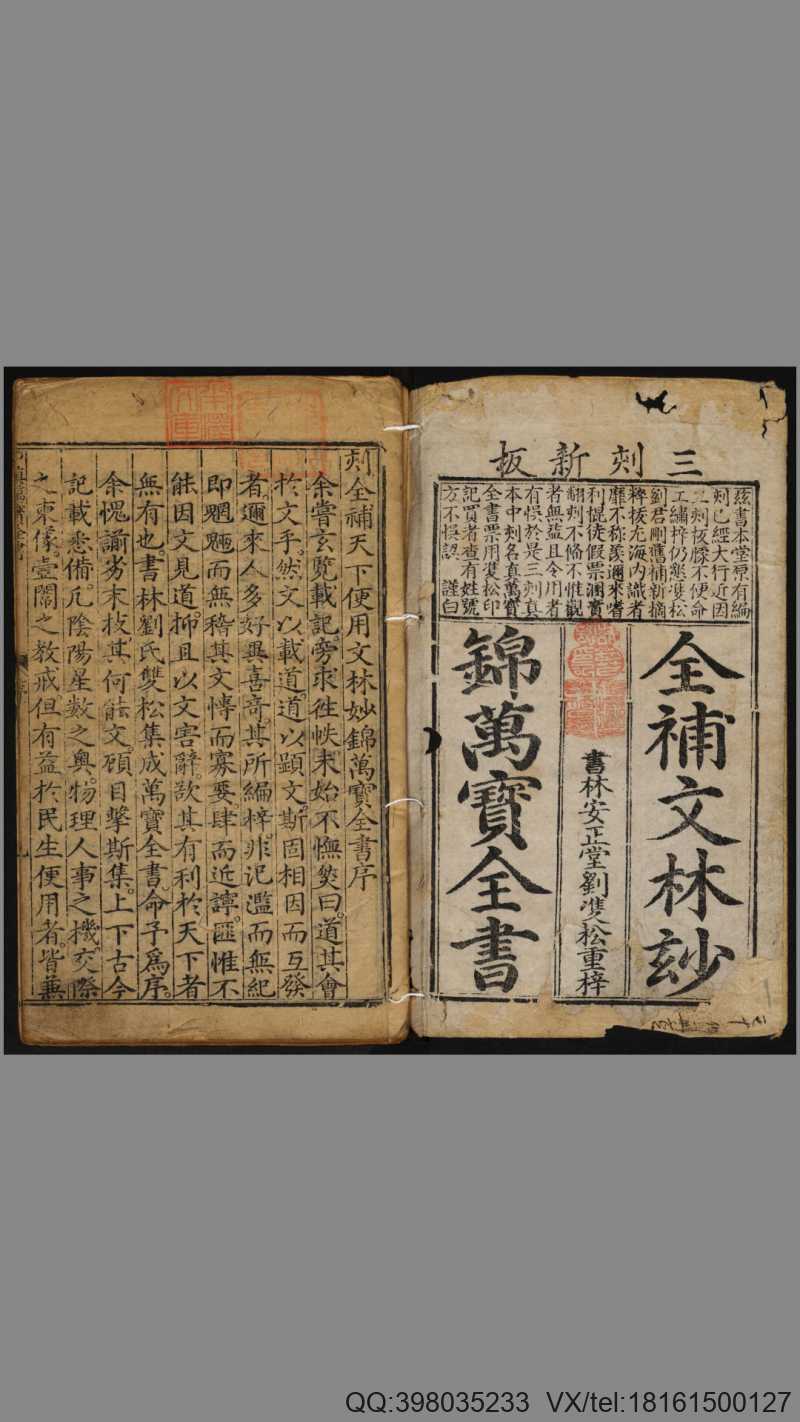 三刻新板
茲書本堂原有編
刻已經大行近因
二刻板朦不便命
工繡梓仍懇雙松
劉君刪舊補新摘
稗拔尤海內識者
靡不称羨邇來嗜
利棍徒假票溷賣
翻刋不俻不惟觀
者無益且令用者
有悮於是三刻真
本中刻名真萬寶
全書票用雙松印
記買者查有姓號
方不悮認 謹白
全補文林玅
書林安正堂劉雙松重梓
錦萬寶全書
刻全補天下便用文林妙錦萬寶全書序
余嘗玄覧載記旁求徃帙未始不憮奐曰道其會
於文乎然文以載道道以顕文斯固相因而互發
者邇來人多好異喜奇其所編梓非汜濫而無紀
即魍魎而無稽其文愽而寡要肆而近諄匪惟不
能因文見道抑且以文害辭欲其有利於天下者
無有也書林劉氏雙松集成萬寶全書命予為序
余愧謭劣末枝其何能文碩目擊斯集上下古今
記載悉備凢陰陽星數之奥物理人事之機交際
之柬像壼閫之教戒但有益於民生便用者皆兼
QQ:398035233 VX/tel:18161500127